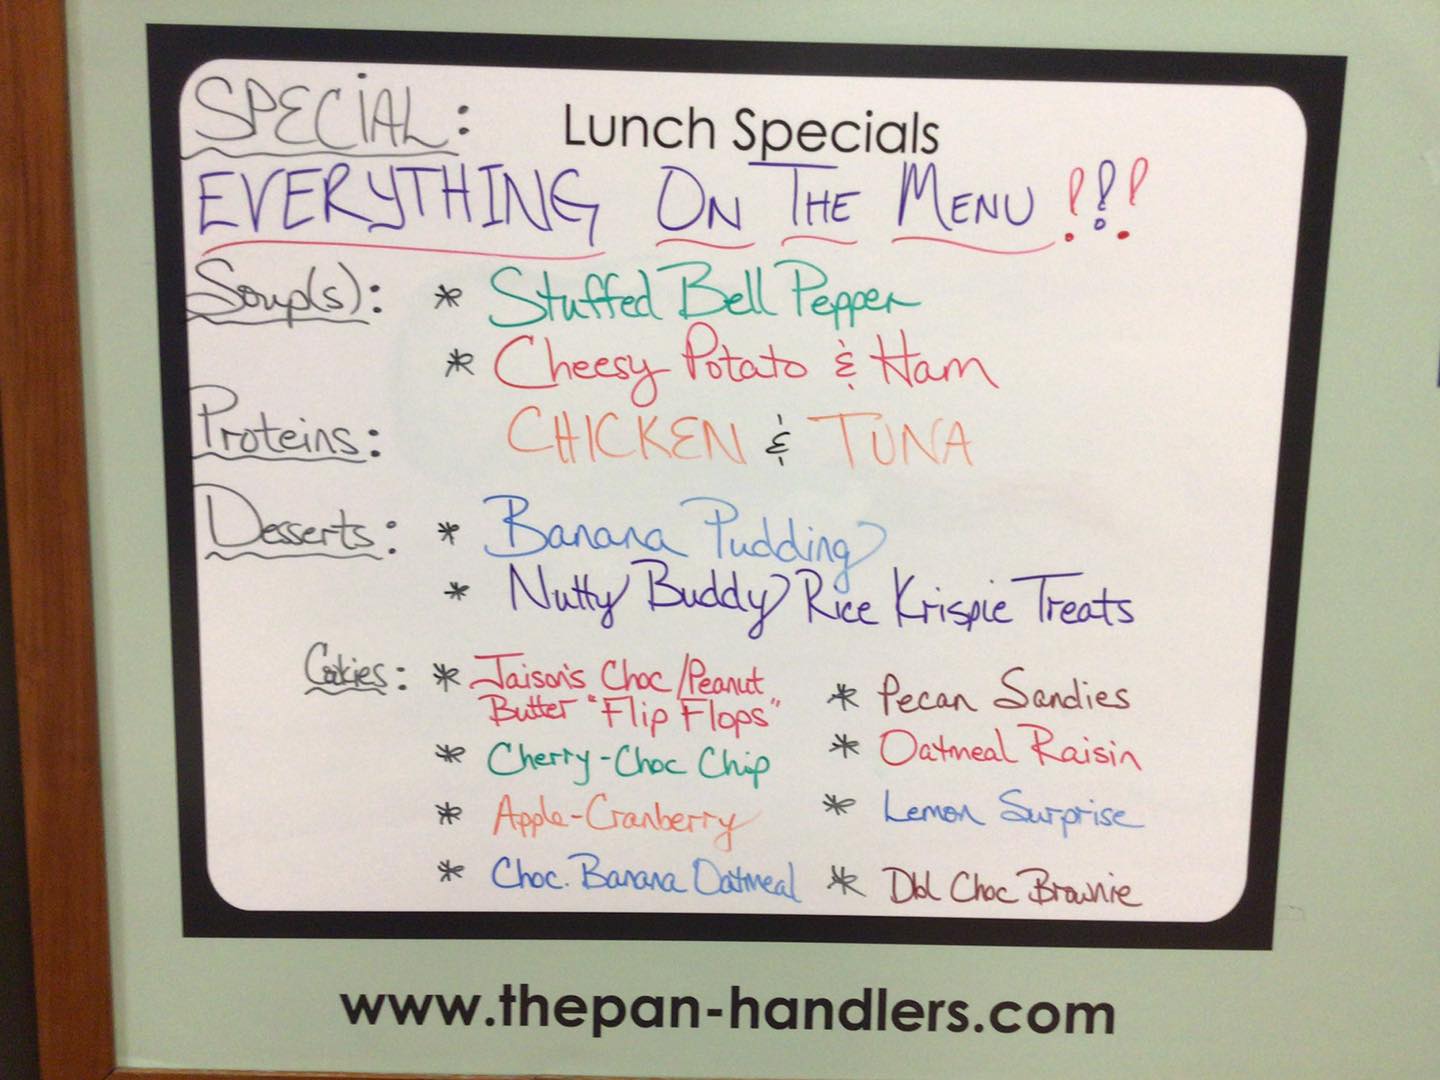 SPECIAL:
Lunch Specials
EVERYTHING ON THE MENU !!!
Soup(s): * Stuffed Bell Pepper
* Cheesy Potato & Ham
Proteins: CHICKEN & TUNA
Desserts: * Banana Pudding
* Nutty Buddy Rice Krispie Treats
Cookies: * Jaison's Choc/Peanut
Butter "Flip Flops"
* Cherry-Choc Chip
* Apple-Cranberry
* Choc. Banana Oatmeal
* Pecan Sandies
* Oatmeal Raisin
* Lemon Surprise
* Dbl Choc Brownie
www.thepan-handlers.com